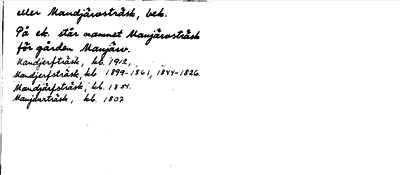 eller Mandjärvsträsk, bek.
På ek. står namnet Manjärvsträsk
för gården Manjärv.
Mandjerfträsk, kb. 1912,
Mandjerfsträsk, kb 1899-1861, 1844-1826.
Mandjärfsträsk, kb. 1854.
Manjerfträsk, kb. 1807